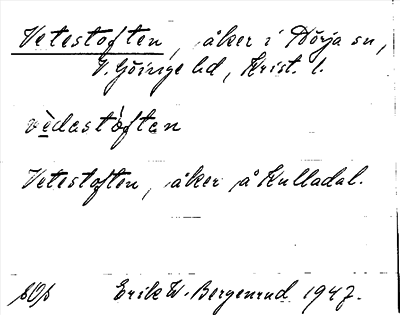 Vetestoften, åker i Dörja sn,
V. Göinge hd, Krist. l.
vèdastòften
Vetestoften, åker å Kulladal.
Erik W. Bergenrud 1947.